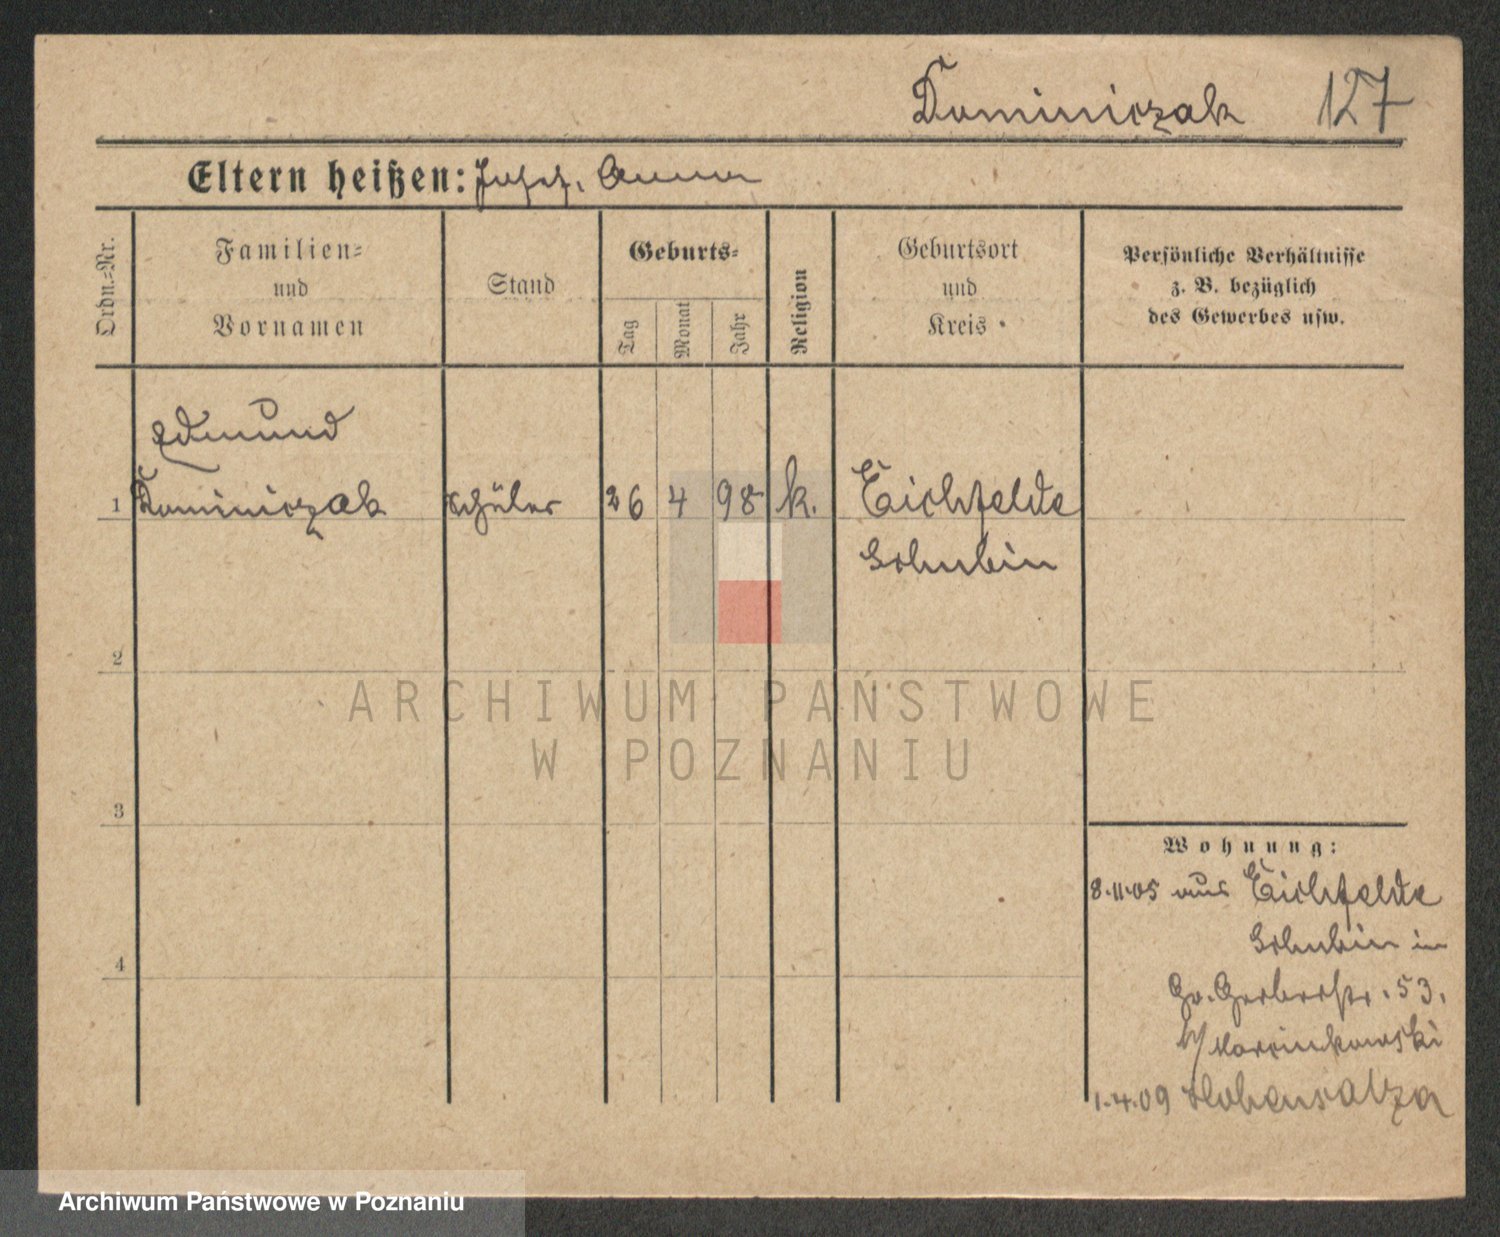 Dominiczak 127
Eltern heißen: Josef, Anna
Ordn.=Nr.
Familien=
und
Vornamen
Stand
Geburts=
Tag
Monat
Jahr
Religion
Geburtsort
und
Kreis
Persönliche Verhältnisse
z. B. bezüglich
des Gewerbes usw.
Edmund
1 Dominiczak Schüler 26 4 98 k. Eichfelde
Schubin
2
3
4
Wohnung:
8.11.05 aus Eichfelde
Schubin in
Gr. Gerberstr. 53.
b/ Marcinkowski
1.4.09 Hohensalza
ARCHIWUM PAŃSTWOWE
W POZNANIU
Archiwum Państwowe w Poznaniu